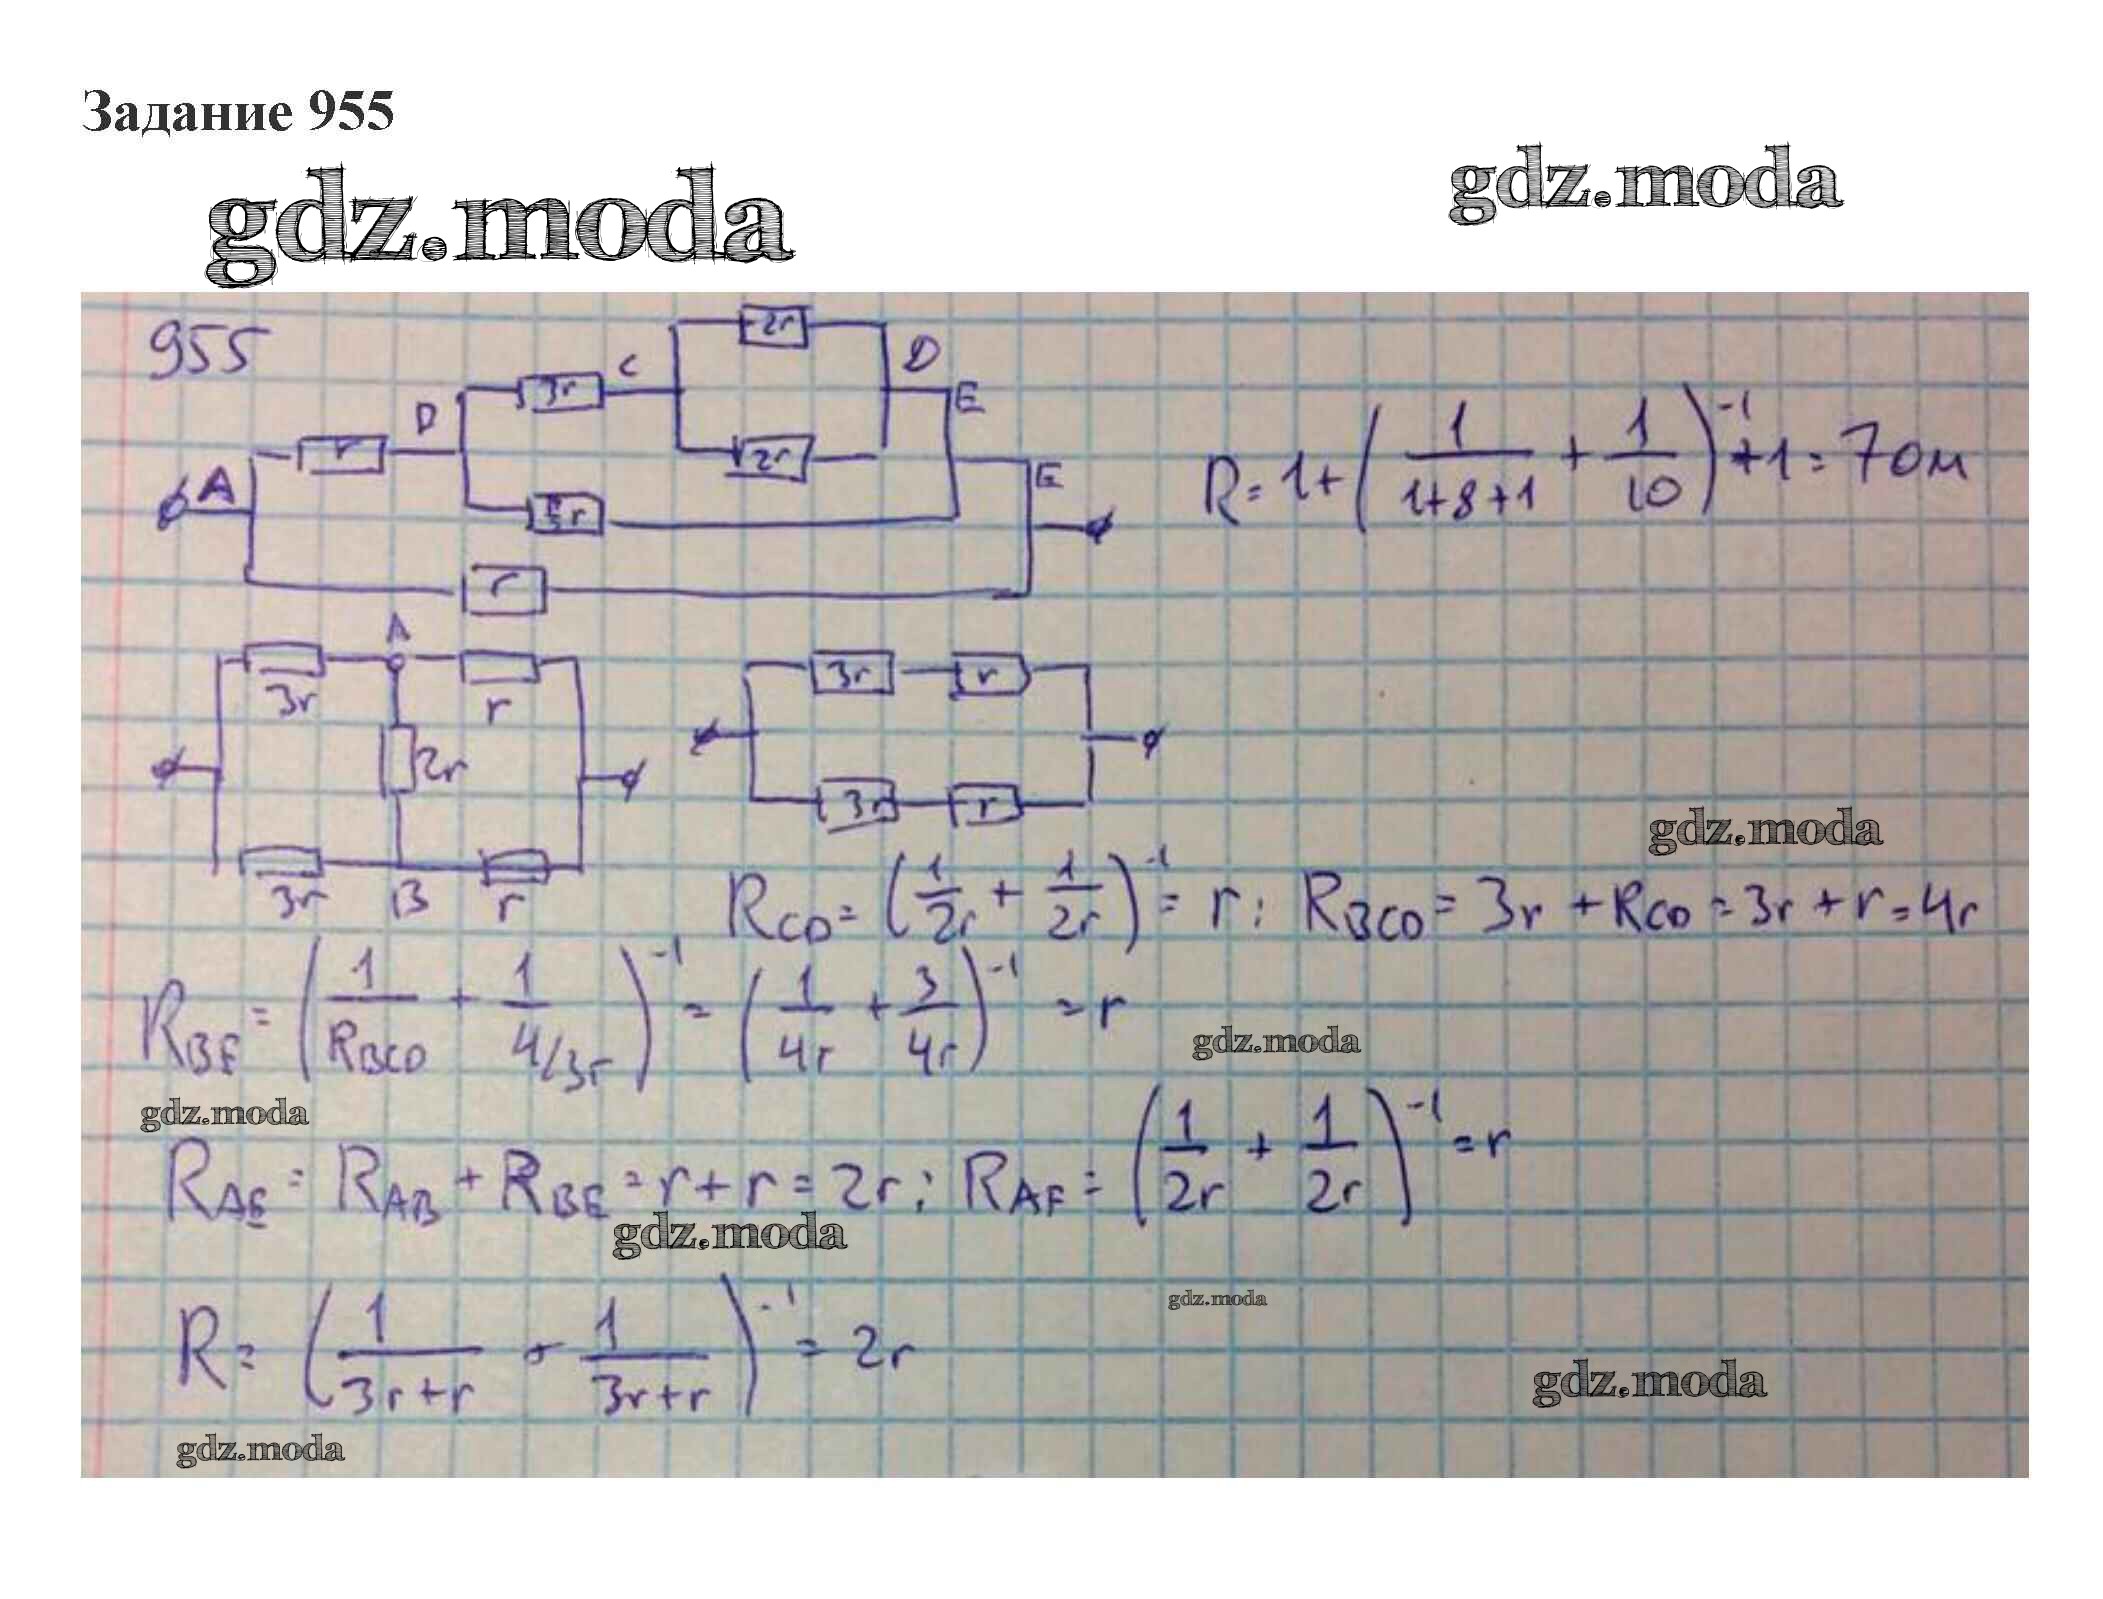 Задание 955
gdz.moda
gdz.moda
955
2r
C
D
3r
E
D
r
2r
A
E
3r
r
R = 1 + (1/(1+8+1) + 1/10)^-1 + 1 = 7 Ом
A
3r
r
2r
3r
B
r
3r
r
3r
r
gdz.moda
R_CD = (1/2r + 1/2r)^-1 = r; R_BCD = 3r + R_CD = 3r + r = 4r
R_BE = (1/R_BCD + 1/(4/3r))^-1 = (1/4r + 3/4r)^-1 = r
gdz.moda
gdz.moda
R_AE = R_AB + R_BE = r + r = 2r; R_AF = (1/2r + 1/2r)^-1 = r
gdz.moda
gdz.moda
R = (1/(3r+r) + 1/(3r+r))^-1 = 2r
gdz.moda
gdz.moda